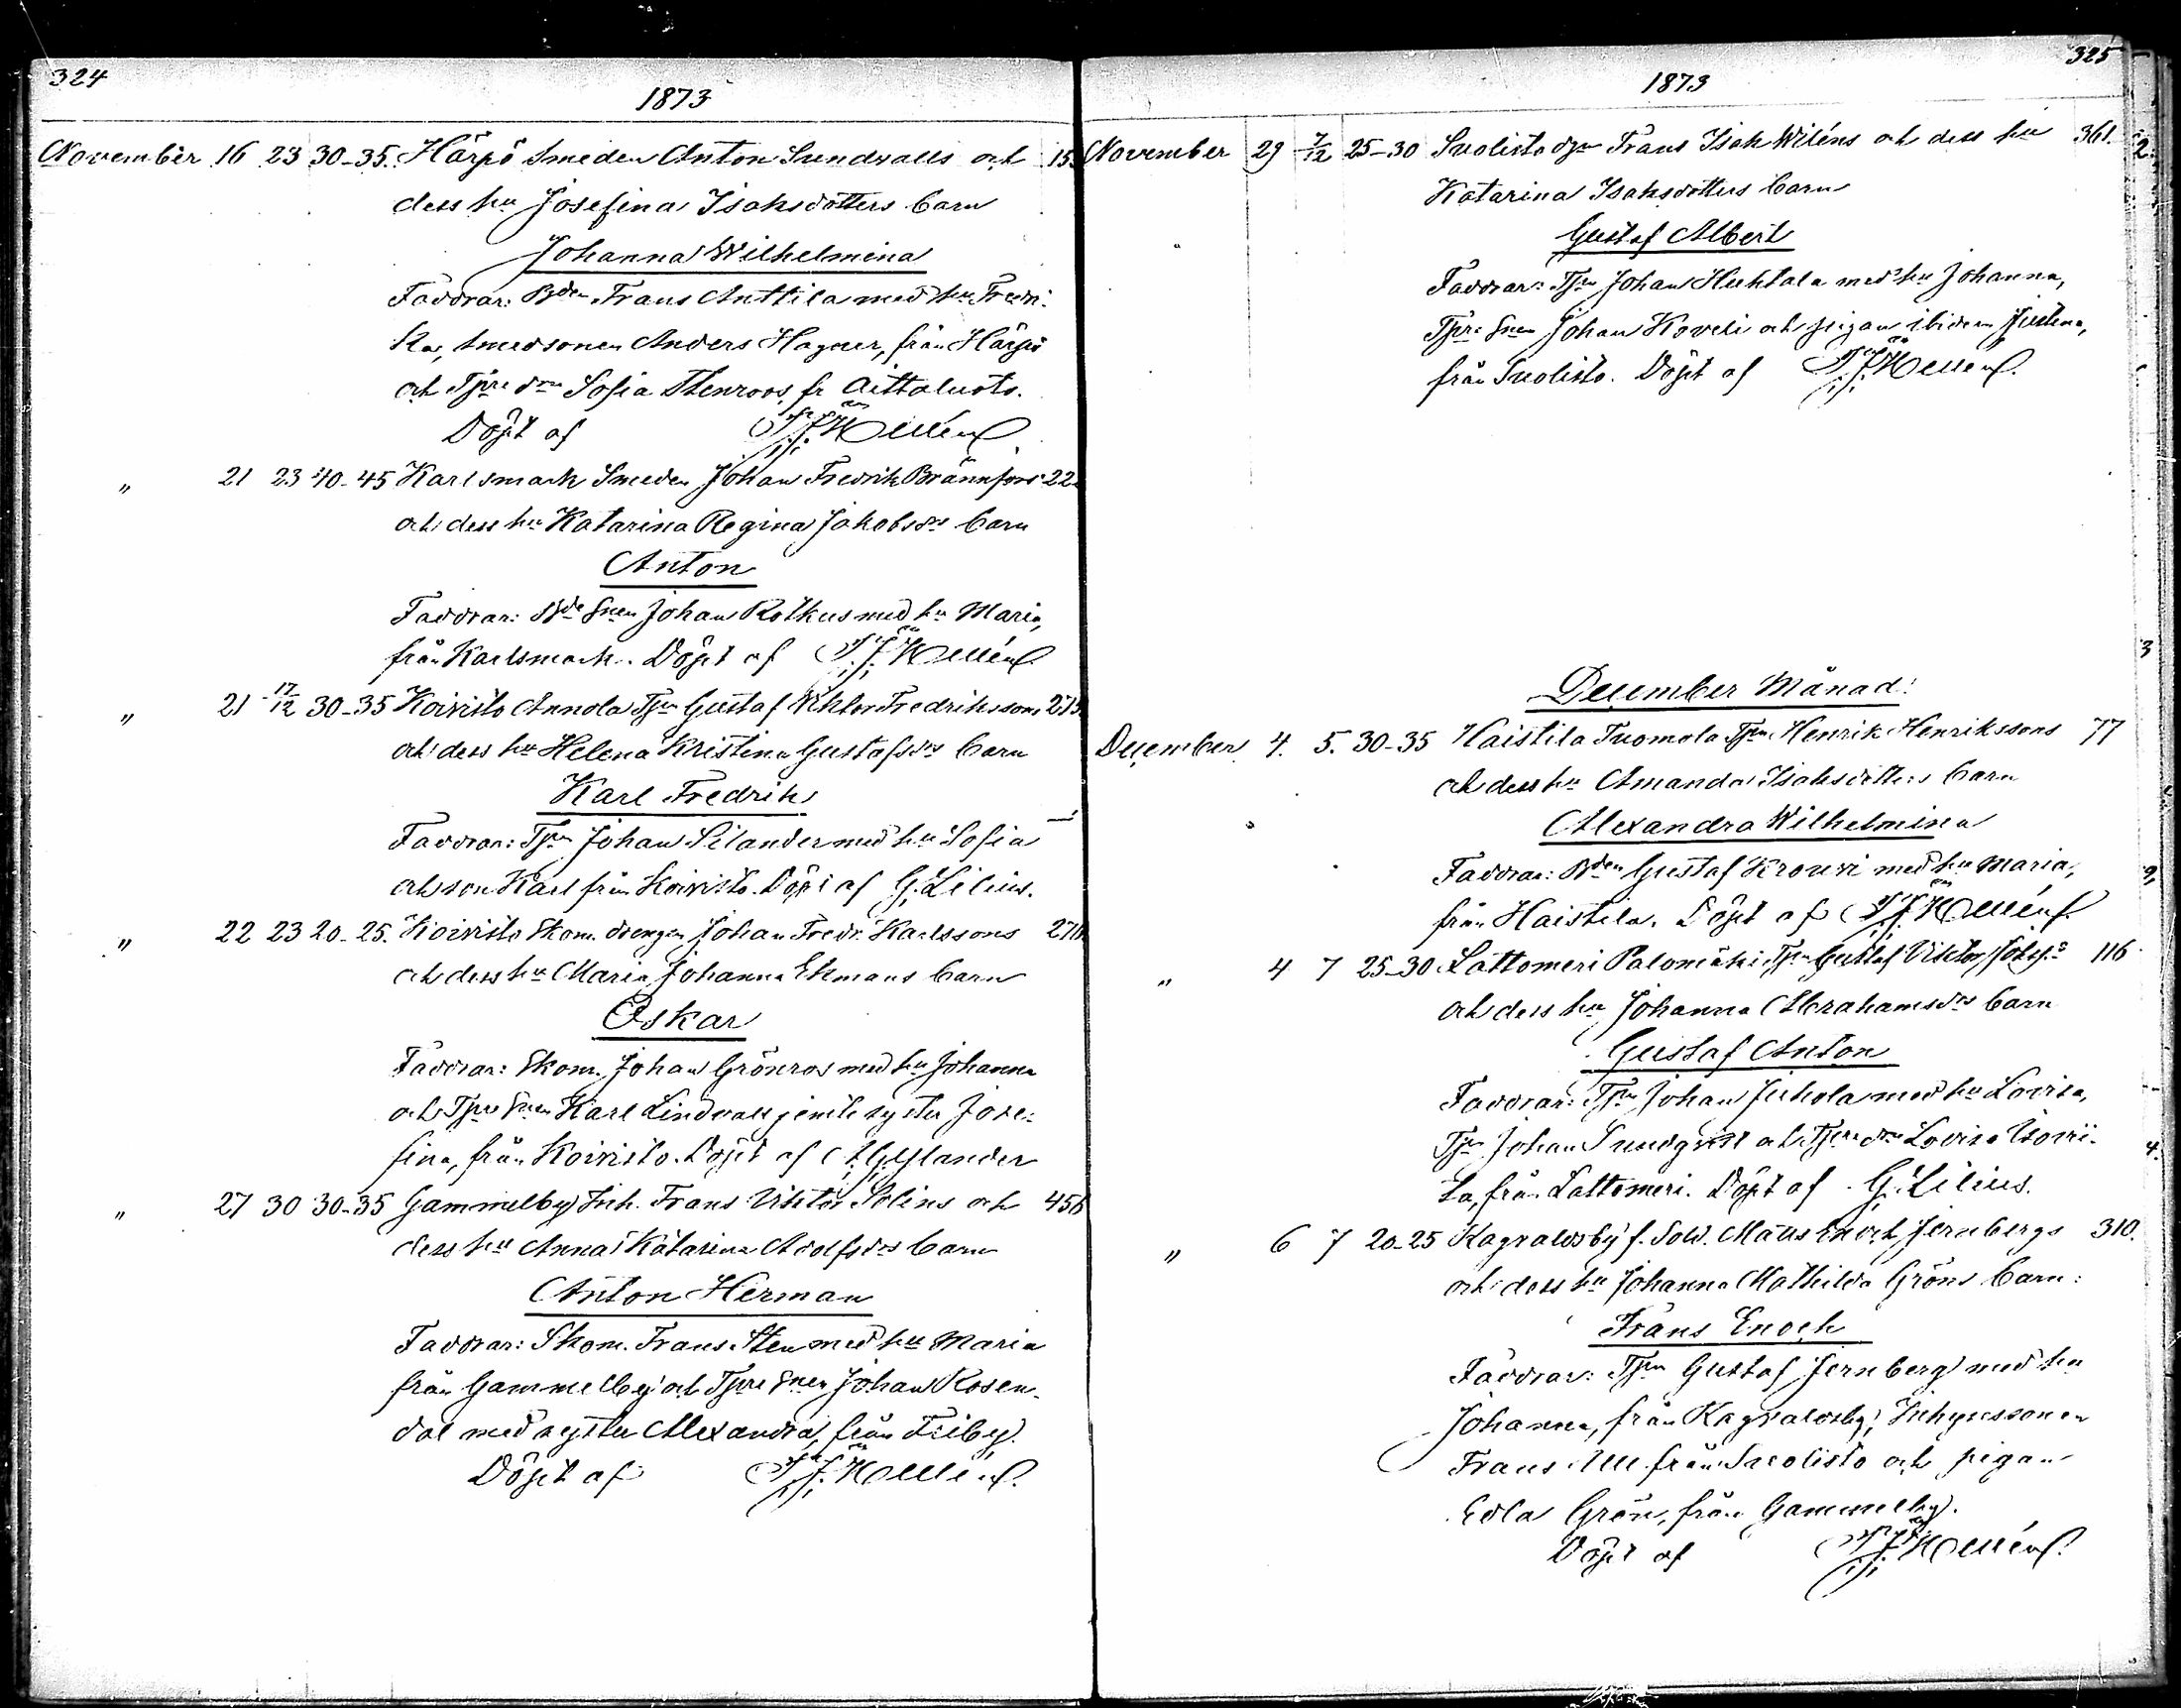 324
1873
November 16 23 30-35. Härpö Smeden Anton Sundvalls och 15
dess hu Josefina Isaksdotters barn
Johanna Wilhelmina
Faddrar: Bden Frans Anttila med hu Fredri-
ka, smedsonen Anders Hagner, från Härpö
och Tpre drn Sofia Stenroos fr Aittaluoto.
Döpt af
" 21 23 40-45 Karlsmark Smeden Johan Fredrik Brännfors 22
och dess hu Katarina Regina Jakobsdrs barn
Anton
Faddrar: Bde Snen Johan Rotkus med hu Maria,
från Karlsmark. Döpt af
" 21 17/12 30-35 Koivisto Annola Tpn Gustaf Viktor Fredrikssons 275
och dess hu Helena Kristina Gustafsdrs barn
Karl Fredrik
Faddrar: Tpn Johan Silander med hu Sofia
och son Karl från Koivisto. Döpt af G. Lilius.
" 22 23 20-25. Koivisto Skom. drengen Johan Fredr. Karlssons 270
och dess hu Maria Johanna Ekmans barn
Oskar
Faddrar: Skom. Johan Grönros med hu Johanna
och Tpre Snen Karl Lindvall jemte syster Jose-
fina, från Koivisto. Döpt af A. Gyllander
" 27 30 30-35 Gammelby Inh. Frans Viktor Solins och 456
dess hu Anna Katarina Adolfsdrs barn
Anton Herman
Faddrar: Skom. Frans Sten med hu Maria
från Gammelby och Tpre Snen Johan Rosen-
dal med syster Alexandra, från Friby.
Döpt af
325
1873
November 29 7/12 25-30 Suolisto dgn Frans Isak Wiléns och dess hu 361.
Katarina Isaksdotters barn
Gustaf Albert
Faddrar: Tpn Johan Huhtala med hu Johanna,
Tpre Snen Johan Koveli och pigan ibidem Justina,
från Suolisto. Döpt af
December Månad:
December 4. 5. 30-35 Haistila Tuomola Tpn Henrik Henrikssons 77
och dess hu Amanda Isaksdotters barn
Alexandra Wilhelmina
Faddrar: Bden Gustaf Krouvi med hu Maria,
från Haistila. Döpt af
" 4 7 25-30 Lattomeri Palomäki, Tpn Gustaf Viktor 116
och dess hu Johanna Abrahamsdrs barn
Gustaf Anton
Faddrar: Tpn Johan Juhola med hu Lovisa,
Tpn Johan Sundqvist och Tpre drn Lovisa
la, från Lattomeri. Döpt af G. Lilius.
" 6 7 20-25 Ragvaldsby f. Sold. Matts Enoch Jernbergs 310.
och dess hu Johanna Mathilda Gröns barn:
Frans Enoch
Faddrar: Tpn Gustaf Jernberg med hu
Johanna, från Ragvaldsby; Inhysessonen
Frans från Suolisto och pigan
Edla Grön, från Gammelby.
Döpt af